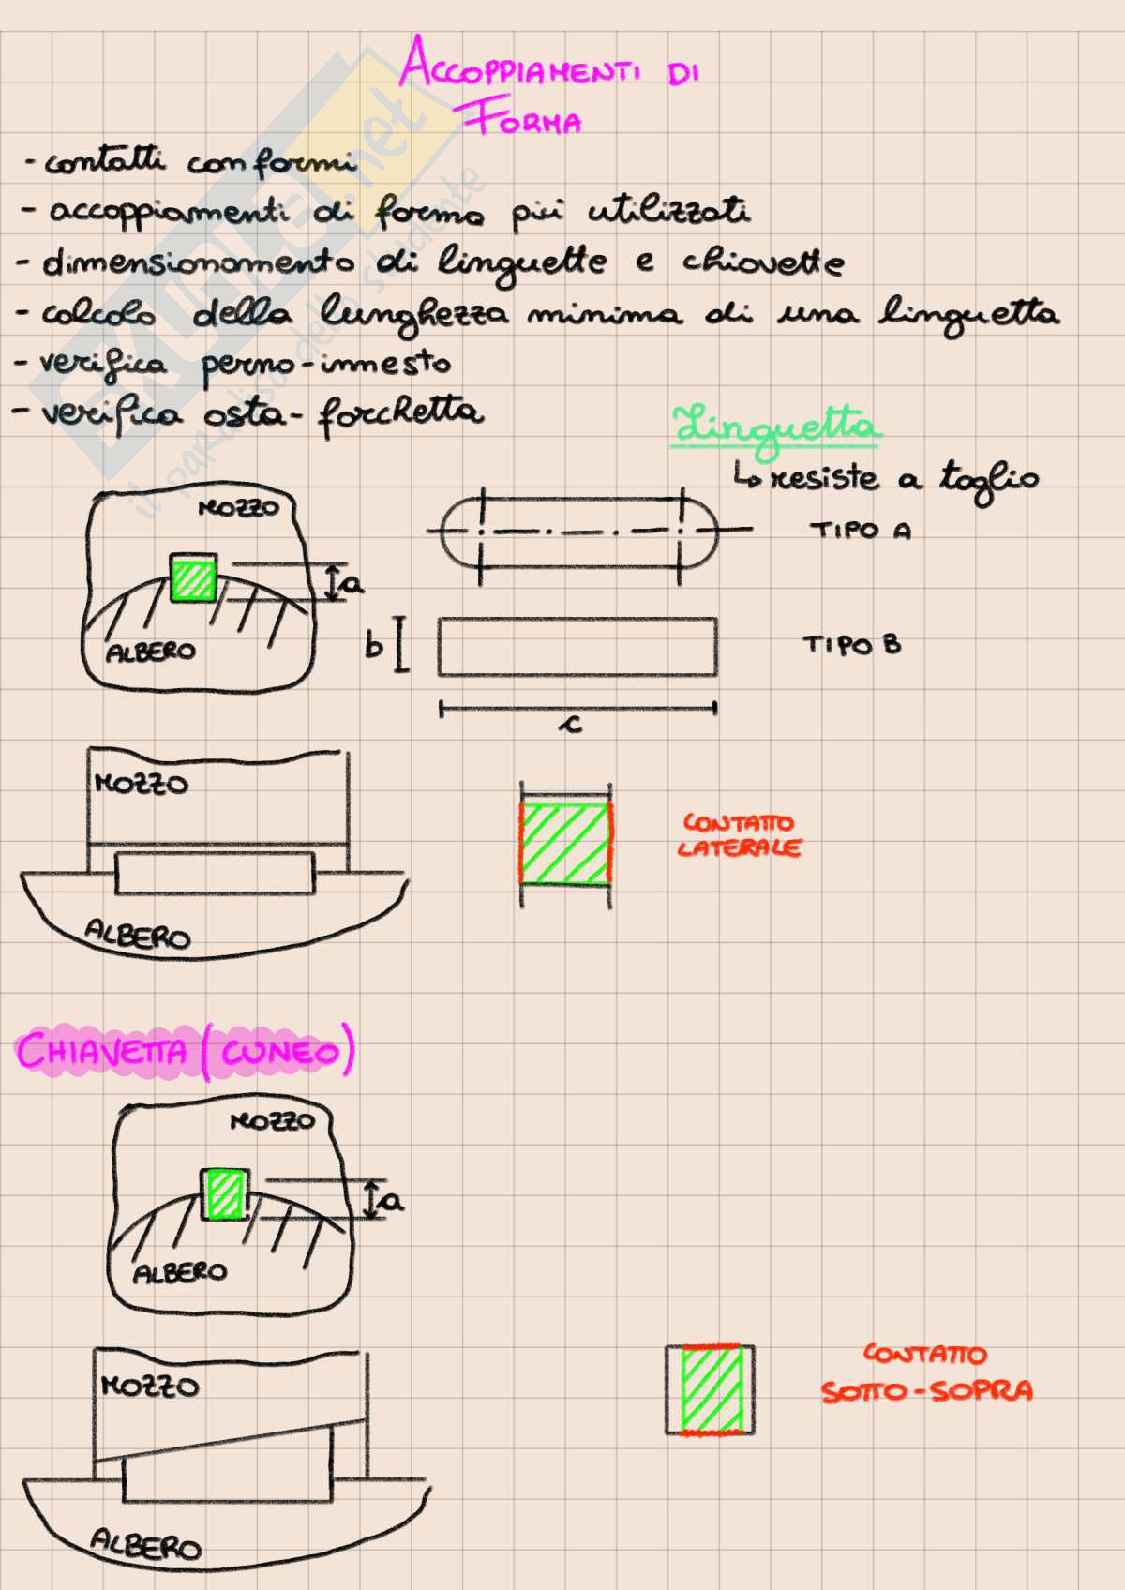 ACCOPPIAMENTI DI
FORMA
- contatti conformi
- accoppiamenti di forma più utilizzati
- dimensionamento di linguette e chiavette
- calcolo della lunghezza minima di una linguetta
- verifica perno-innesto
- verifica asta-forchetta
Linguetta
↳ resiste a taglio
MOZZO
TIPO A
a
ALBERO
b
TIPO B
c
MOZZO
CONTATTO
LATERALE
ALBERO
CHIAVETTA (CUNEO)
MOZZO
a
ALBERO
MOZZO
CONTATTO
SOTTO-SOPRA
ALBERO
SKUOLA.net
il paradiso dello studente